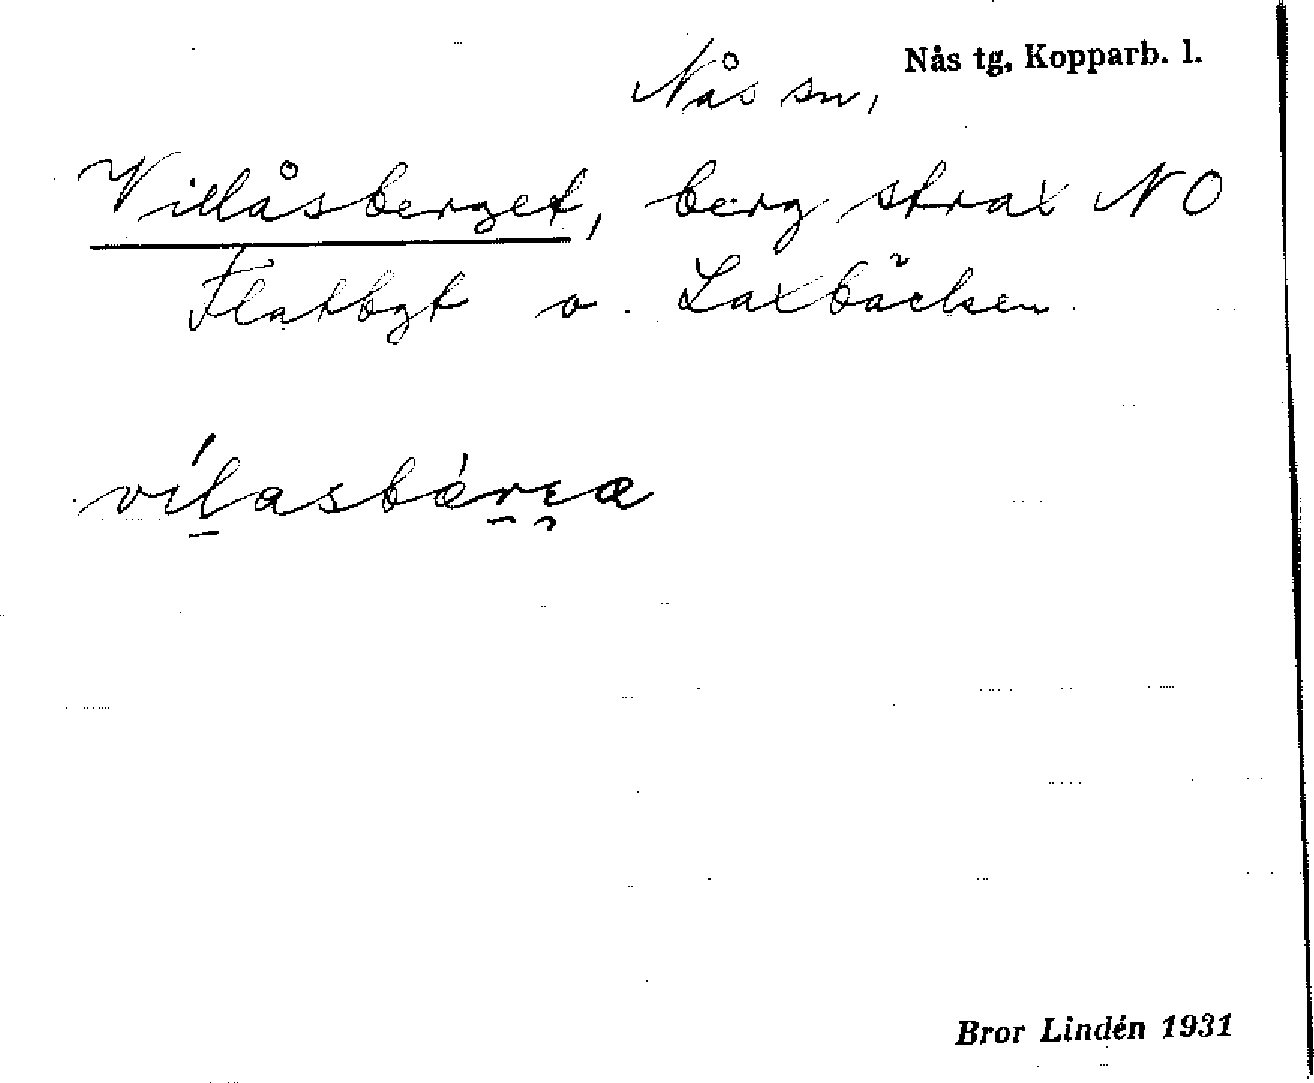 Nås tg, Kopparb. l.
Nås sn,
Villåsberget, berg strax NO
Flatbgt o. Laxbäcken.
vílasbárɪa
Bror Lindén 1931